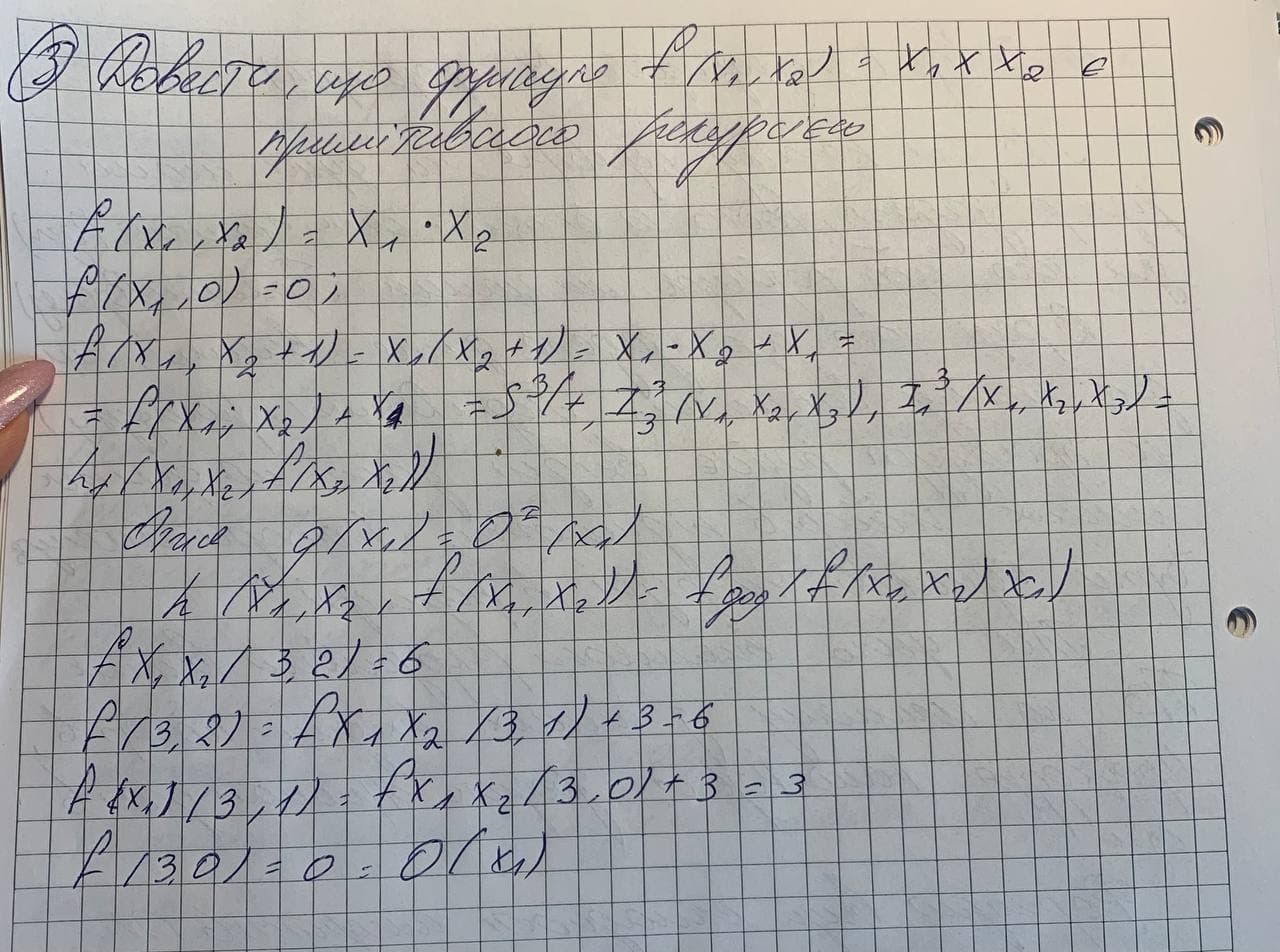 ③ Довести, що функція f(x₁, x₂) = x₁ x x₂ є
примітивною рекурсією
f(x₁, x₂) = x₁ · x₂
f(x₁, 0) = 0;
f(x₁, x₂ + 1) = x₁(x₂ + 1) = x₁ · x₂ + x₁ =
= f(x₁; x₂) + x₁ = S³(+, I₃³(x₁, x₂, x₃), I₁³(x₁, x₂, x₃) =
h₁(x₁, x₂, f(x₃, x₂))
Отже g(x₁) = 0⁼(x₁)
h (x₁, x₂, f(x₁, x₂)) = fдод(f(x₁, x₂) x₁)
f x₁ x₂(3, 2) = 6
f(3, 2) = f x₁ x₂ (3, 1) + 3 = 6
f(x₁)(3, 1) = f x₁ x₂(3, 0) + 3 = 3
f(3 0) = 0 = 0(x₁)